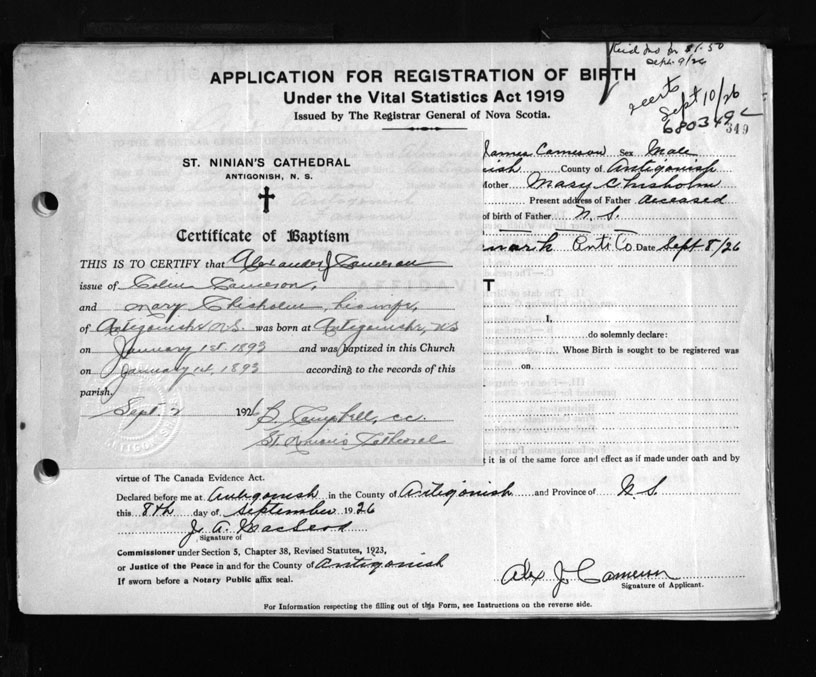 Sept. 9/26
Sept 10/26
680349
349
APPLICATION FOR REGISTRATION OF BIRTH
Under the Vital Statistics Act 1919
Issued by The Registrar General of Nova Scotia.
ST. NINIAN'S CATHEDRAL
ANTIGONISH, N. S.
Certificate of Baptism
THIS IS TO CERTIFY that Alexander J Cameron
issue of Colin Cameron,
and Mary Chisholm, his wife,
of Antigonish N.S. was born at Antigonish, N.S
on January 1st 1893 and was baptized in this Church
on January 14 1893 according to the records of this
parish.
Sept. 2 1926 Campbell, cc.
St. Ninian's Cathedral
James Cameron Sex Male
ish County of Antigonish
Mother Mary Chisholm
Present address of Father deceased
of birth of Father N. S.
Anti Co. Date Sept 8/26
T
I,
do solemnly declare:
Whose Birth is sought to be registered was
on
t it is of the same force and effect as if made under oath and by
virtue of The Canada Evidence Act.
Declared before me at Antigonish in the County of Antigonish and Province of N. S.
this 8th day of September 1926
J. A. MacLeod
Signature of
Commissioner under Section 5, Chapter 38, Revised Statutes, 1923,
or Justice of the Peace in and for the County of Antigonish
If sworn before a Notary Public affix seal.
Alex J Cameron
Signature of Applicant.
For Information respecting the filling out of this Form, see Instructions on the reverse side.